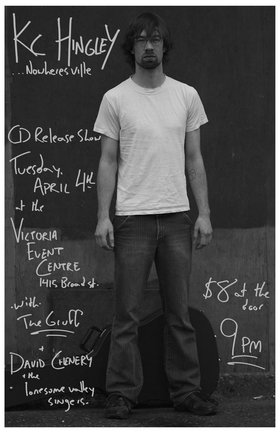 KC HINGLEY
...Nowheresville
CD Release Show
Tuesday,
APRIL 4th
at the
VICTORIA
EVENT
CENTRE
1415 Broad st.
with
The Gruff
+
DAVID CHENERY
+ the
lonesome valley
singers.
$8 at the
door
9PM